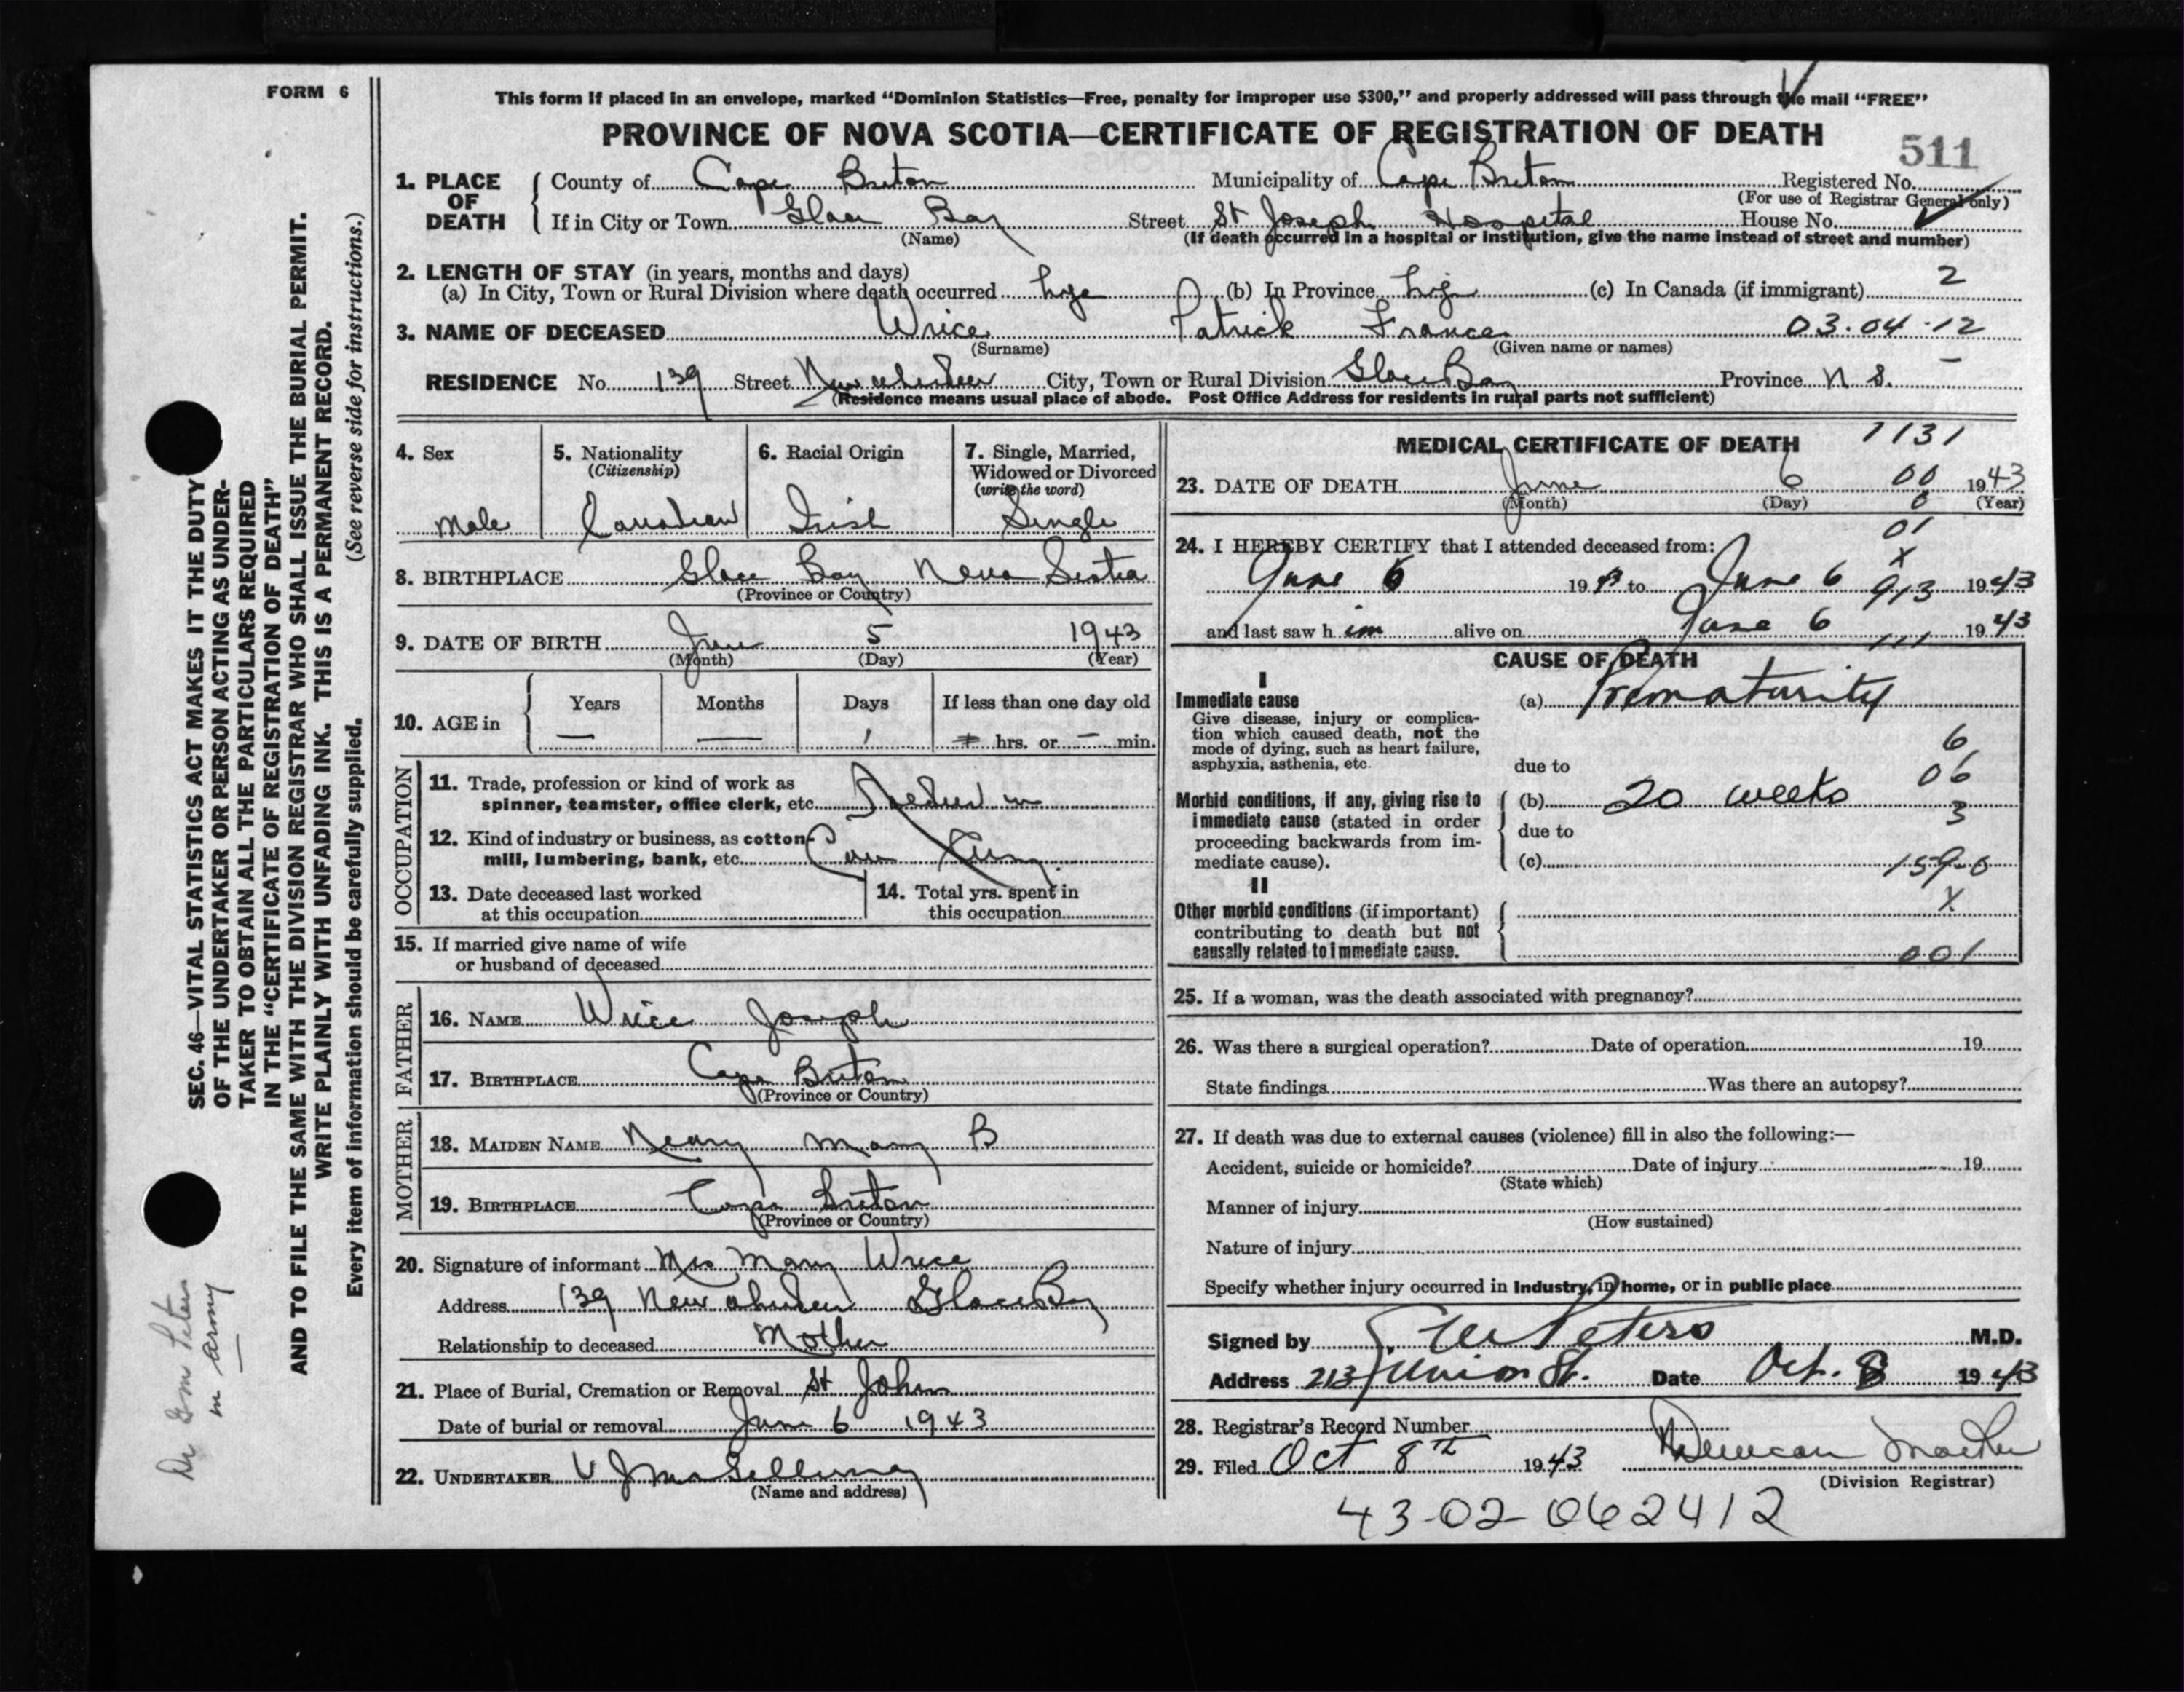 FORM 6
This form if placed in an envelope, marked “Dominion Statistics—Free, penalty for improper use $300,” and properly addressed will pass through the mail “FREE”
PROVINCE OF NOVA SCOTIA—CERTIFICATE OF REGISTRATION OF DEATH
511
1. PLACE OF DEATH { County of Cape Breton Municipality of Cape Breton Registered No.
(For use of Registrar General only)
If in City or Town Glace Bay Street St Joseph Hospital House No.
(Name) (If death occurred in a hospital or institution, give the name instead of street and number)
2. LENGTH OF STAY (in years, months and days) 2
(a) In City, Town or Rural Division where death occurred life (b) In Province life (c) In Canada (if immigrant)
3. NAME OF DECEASED Wrice Patrick Francis 03.04.12
(Surname) (Given name or names)
RESIDENCE No. 139 Street New Aberdeen City, Town or Rural Division Glace Bay Province N S. –
(Residence means usual place of abode. Post Office Address for residents in rural parts not sufficient)
4. Sex
Male
5. Nationality
(Citizenship)
Canadian
6. Racial Origin
Irish
7. Single, Married,
Widowed or Divorced
(write the word)
Single
8. BIRTHPLACE Glace Bay Nova Scotia
(Province or Country)
9. DATE OF BIRTH June 5 1943
(Month) (Day) (Year)
10. AGE in { Years Months Days If less than one day old
— — 1 hrs. or — min.
OCCUPATION
11. Trade, profession or kind of work as
spinner, teamster, office clerk, etc.
12. Kind of industry or business, as cotton
mill, lumbering, bank, etc.
13. Date deceased last worked
at this occupation
14. Total yrs. spent in
this occupation
15. If married give name of wife
or husband of deceased
FATHER
16. NAME Wrice Joseph
17. BIRTHPLACE Cape Breton
(Province or Country)
MOTHER
18. MAIDEN NAME Neary Mary B
19. BIRTHPLACE Cape Breton
(Province or Country)
20. Signature of informant Mrs Mary Wrice
Address 139 New Aberdeen Glace Bay
Relationship to deceased Mother
21. Place of Burial, Cremation or Removal St Johns
Date of burial or removal June 6 1943
22. UNDERTAKER
(Name and address)
MEDICAL CERTIFICATE OF DEATH 1131
23. DATE OF DEATH June 6 00 1943
(Month) (Day) 0 (Year)
01
24. I HEREBY CERTIFY that I attended deceased from:
x
June 6 1943 to June 6 913 1943
and last saw him alive on June 6 111 1943
CAUSE OF DEATH
I
Immediate cause (a) Prematurity
Give disease, injury or complica-
tion which caused death, not the
mode of dying, such as heart failure,
asphyxia, asthenia, etc.
6
due to 06
Morbid conditions, if any, giving rise to
immediate cause (stated in order
proceeding backwards from im-
mediate cause).
(b) 20 weeks
3
due to
(c) 159-0
II
X
Other morbid conditions (if important)
contributing to death but not
causally related to immediate cause.
001
25. If a woman, was the death associated with pregnancy?
26. Was there a surgical operation? Date of operation 19
State findings Was there an autopsy?
27. If death was due to external causes (violence) fill in also the following:—
Accident, suicide or homicide? Date of injury 19
(State which)
Manner of injury
(How sustained)
Nature of injury
Specify whether injury occurred in Industry, in home, or in public place
Signed by Peters M.D.
Address 213 Union St. Date Oct. 8 1943
28. Registrar's Record Number
29. Filed Oct 8th 1943 Duncan
(Division Registrar)
43-02-062412
SEC. 46—VITAL STATISTICS ACT MAKES IT THE DUTY
OF THE UNDERTAKER OR PERSON ACTING AS UNDER-
TAKER TO OBTAIN ALL THE PARTICULARS REQUIRED
IN THE “CERTIFICATE OF REGISTRATION OF DEATH”
AND TO FILE THE SAME WITH THE DIVISION REGISTRAR WHO SHALL ISSUE THE BURIAL PERMIT.
WRITE PLAINLY WITH UNFADING INK. THIS IS A PERMANENT RECORD.
Every item of information should be carefully supplied. (See reverse side for instructions.)
Dr Peters
in army